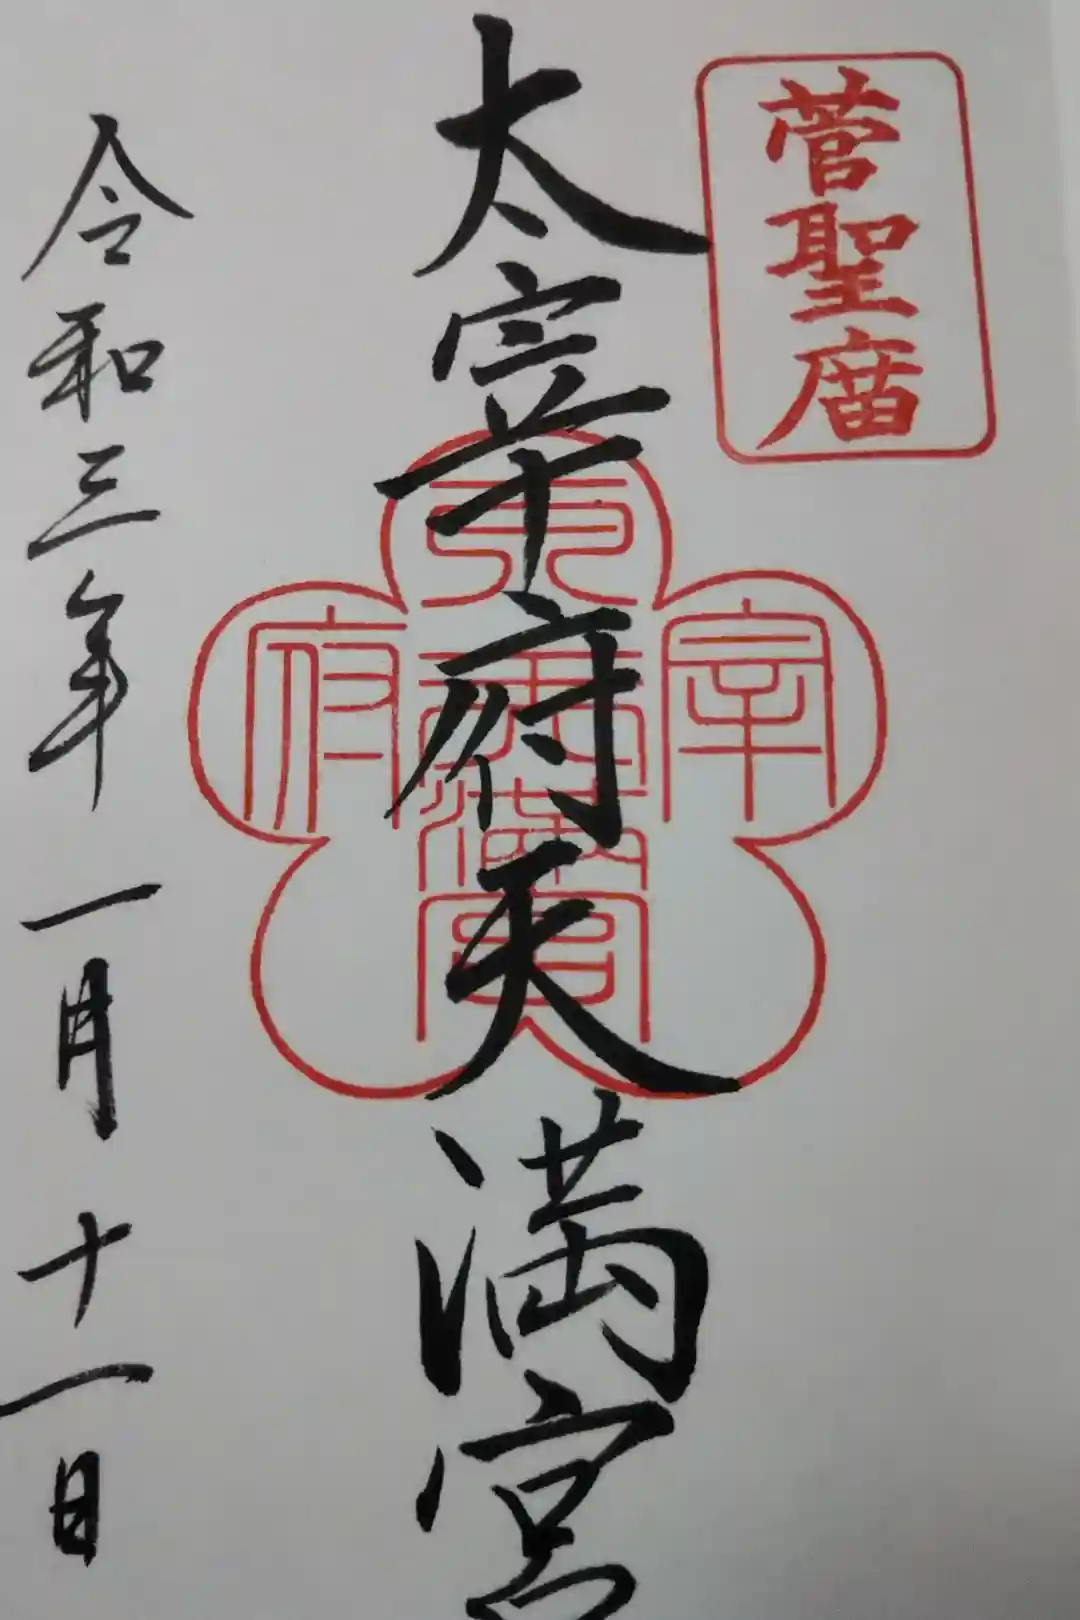 菅聖廟
太宰府天満宮
宰
府
天満宮
令和三年一月十一日